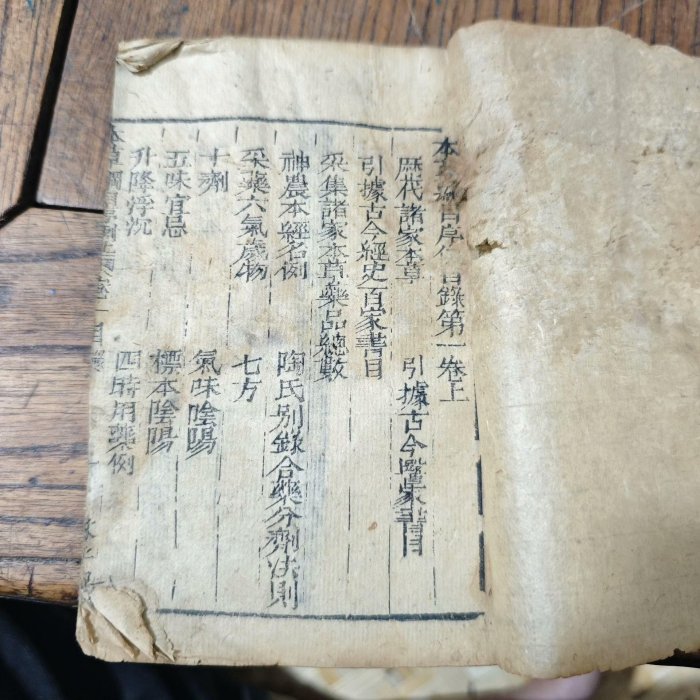 本草綱目序例目錄第一卷上
歷代諸家本草 引據古今醫家書目
引據古今經史百家書目
采集諸家本草藥品總數
神農本經名例 陶氏別錄合藥分劑法則
采藥六氣歲物 七方
十劑 氣味陰陽
五味宜忌 標本陰陽
升降浮沉 四時用藥例
本草綱目